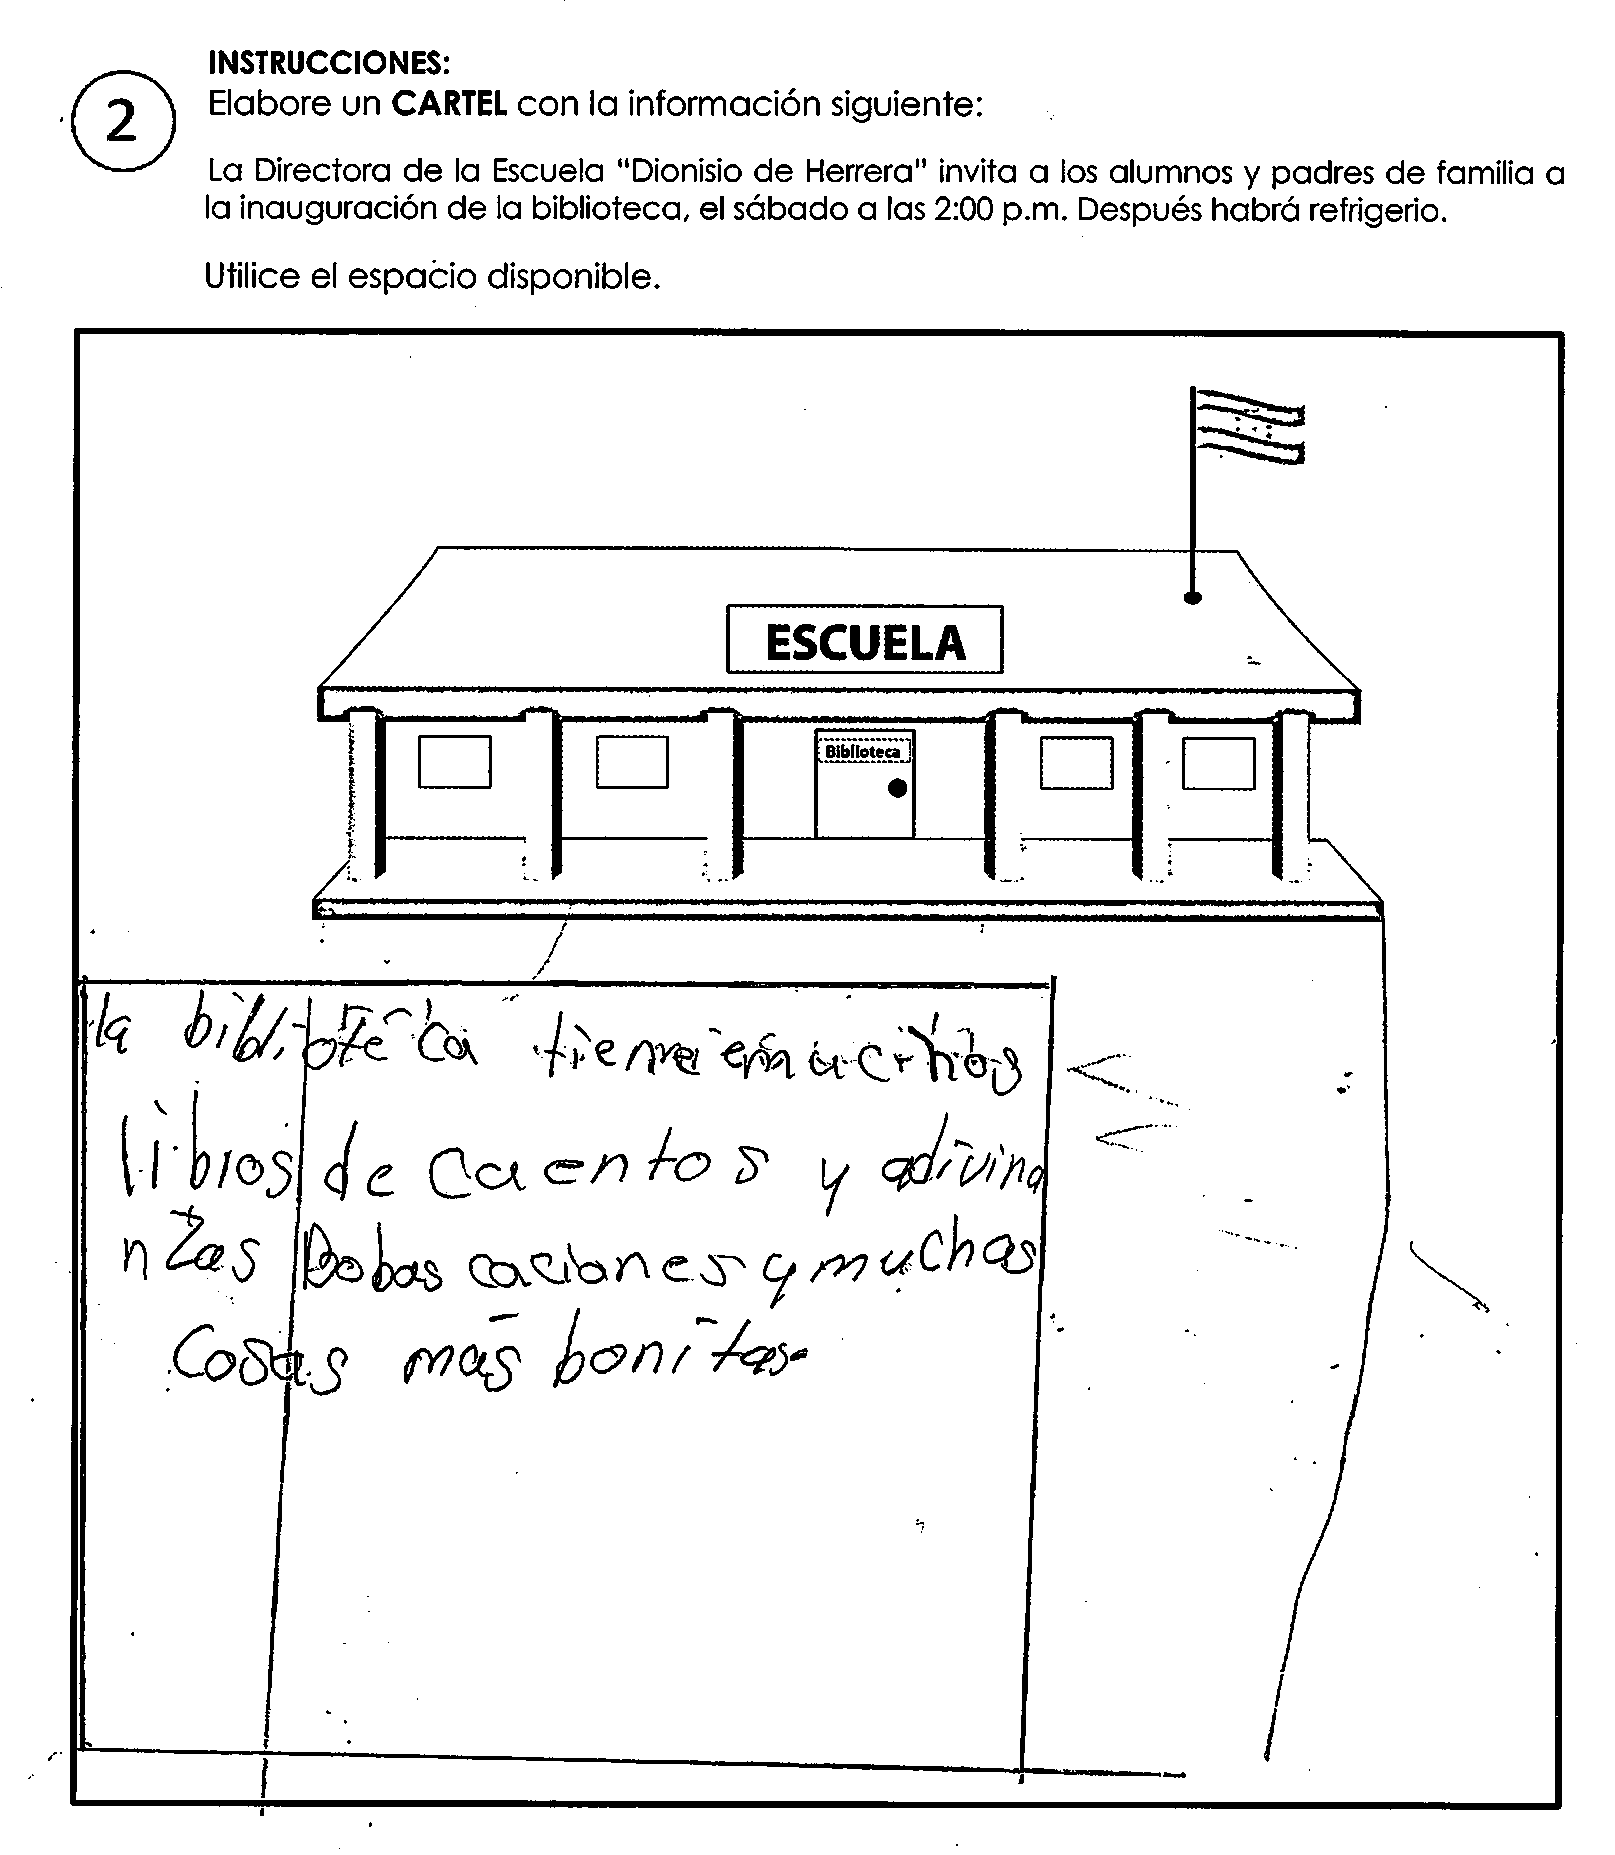 INSTRUCCIONES:
2
Elabore un CARTEL con la información siguiente:
La Directora de la Escuela "Dionisio de Herrera" invita a los alumnos y padres de familia a
la inauguración de la biblioteca, el sábado a las 2:00 p.m. Después habrá refrigerio.
Utilice el espacio disponible.
ESCUELA
Biblioteca
la biblioteca tiene muchos
libros de cuentos y adivina
nzas Bobas caciones y muchas
cosas más bonitas